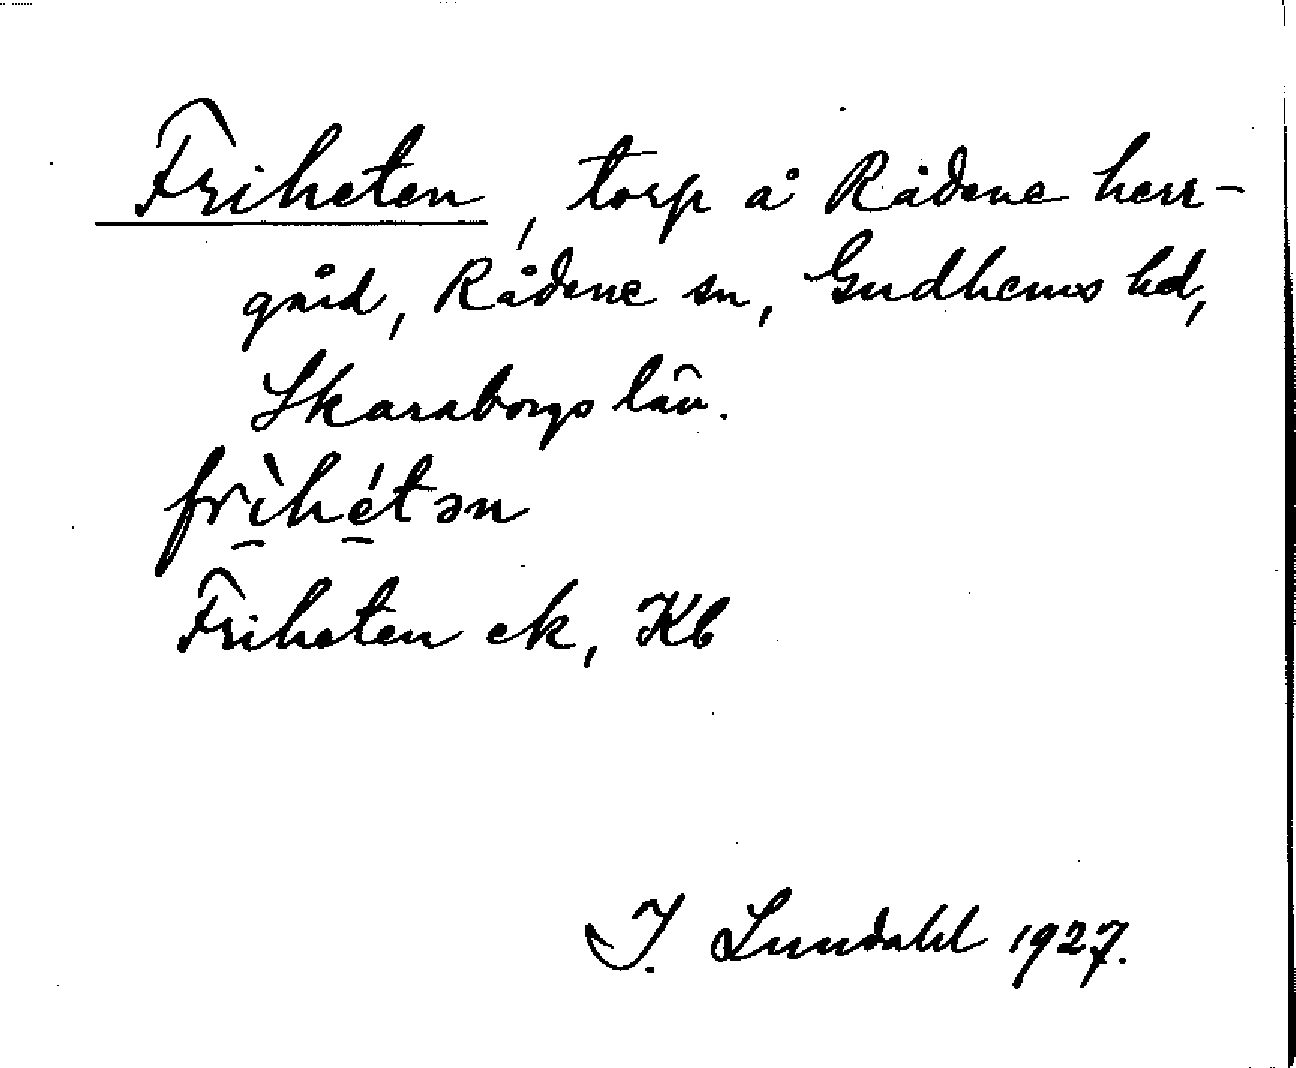 Friheten, torp å Rådene herr-
gård, Rådene sn, Gudhems hd,
Skaraborgs län.
frìhétən
Friheten ek, Kb
I. Lundahl 1927.